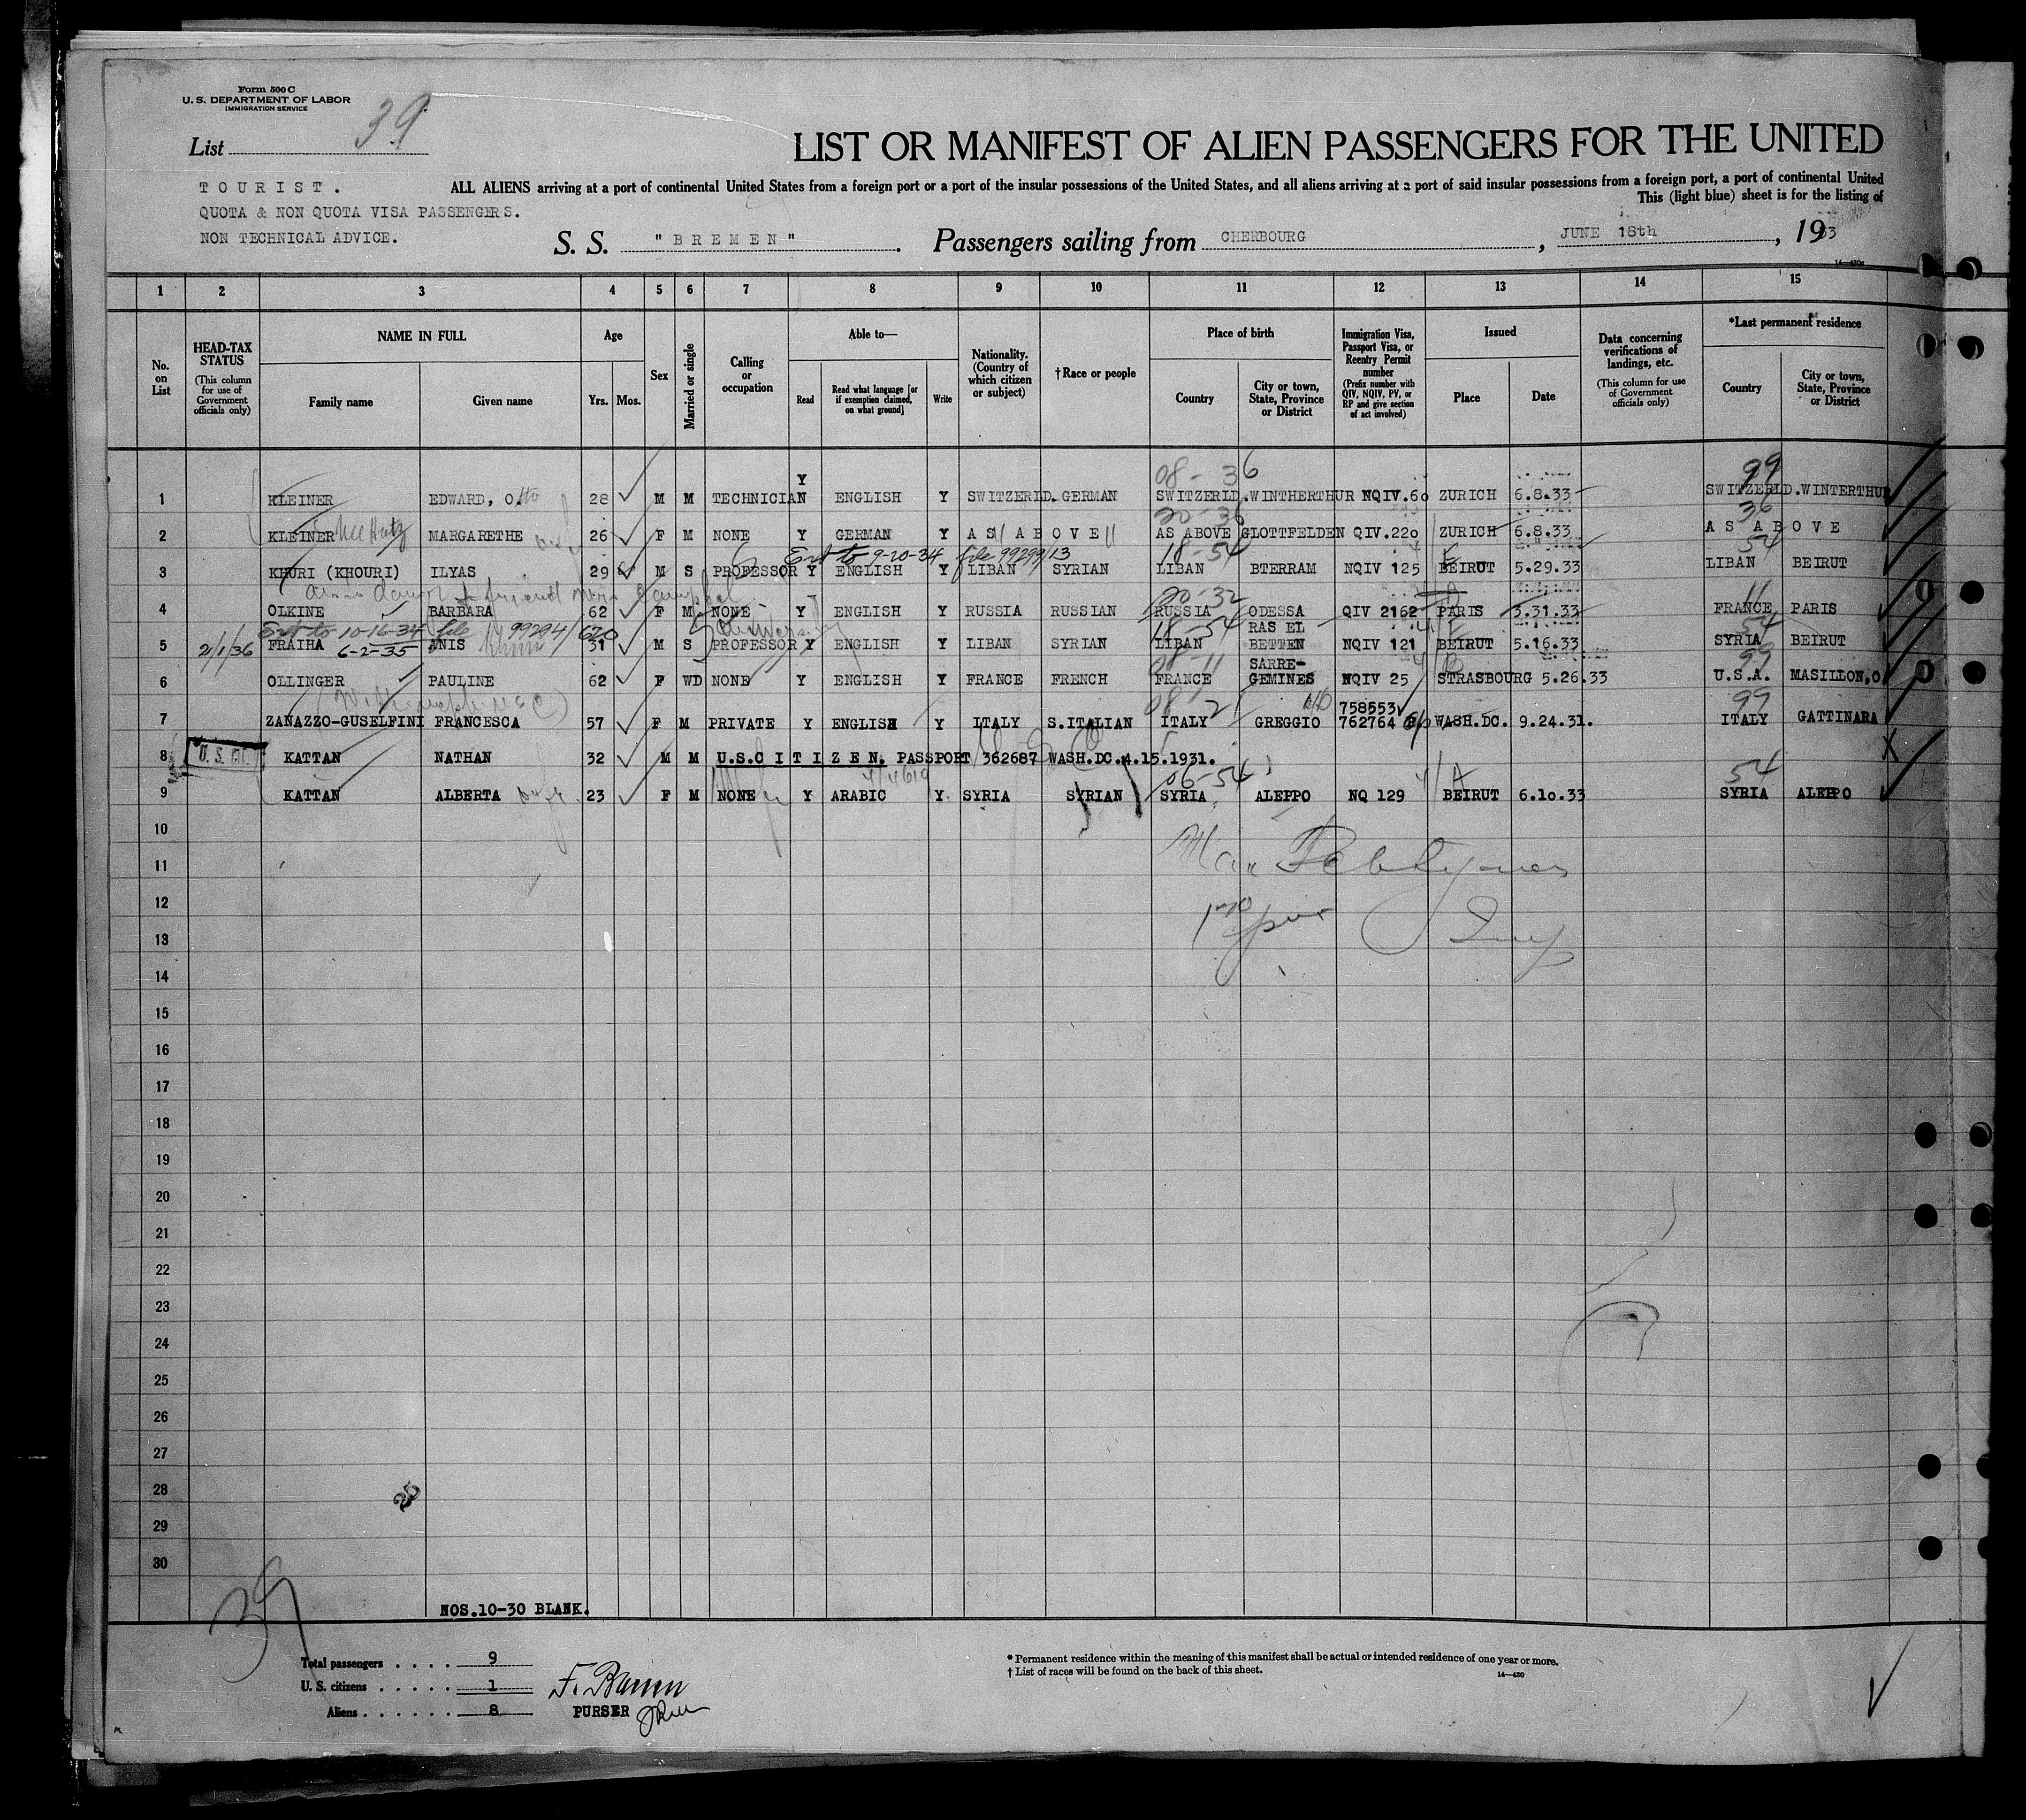 Form 500 C
U. S. DEPARTMENT OF LABOR
IMMIGRATION SERVICE
List 39
LIST OR MANIFEST OF ALIEN PASSENGERS FOR THE UNITED
TOURIST.
QUOTA & NON QUOTA VISA PASSENGERS.
NON TECHNICAL ADVICE.
ALL ALIENS arriving at a port of continental United States from a foreign port or a port of the insular possessions of the United States, and all aliens arriving at a port of said insular possessions from a foreign port, a port of continental United
This (light blue) sheet is for the listing of
S. S. "BREMEN". Passengers sailing from CHERBOURG, JUNE 18th, 1933
14—430
1 2 3 4 5 6 7 8 9 10 11 12 13 14 15
No. on List
HEAD-TAX STATUS
(This column for use of Government officials only)
NAME IN FULL
Family name
Given name
Age
Yrs. Mos.
Sex
Married or single
Calling or occupation
Able to—
Read
Read what language [or if exemption claimed, on what ground]
Write
Nationality. (Country of which citizen or subject)
†Race or people
Place of birth
Country
City or town, State, Province or District
Immigration Visa, Passport Visa, or Reentry Permit number
(Prefix number with QIV, NQIV, PV, or RP and give section of act involved)
Issued
Place
Date
Data concerning verifications of landings, etc.
(This column for use of Government officials only)
*Last permanent residence
Country
City or town, State, Province or District
08-36 99
Y
1 KLEINER EDWARD, Otto 28 M M TECHNICIAN ENGLISH Y SWITZERLD. GERMAN SWITZERLD. WINTHERTHUR NQIV.60 ZURICH 6.8.33 SWITZERLD. WINTERTHUR
20-36 36
2 KLEINER MARGARETHE 26 F M NONE Y GERMAN Y AS ABOVE AS ABOVE GLOTTFELDEN QIV.220 ZURICH 6.8.33 AS ABOVE
Ext to 9-20-34 file 99299/13 18-54 54
3 KHURI (KHOURI) ILYAS 29 M S PROFESSOR Y ENGLISH Y LIBAN SYRIAN LIBAN BTERRAM NQIV 125 BEIRUT 5.29.33 LIBAN BEIRUT
20-32 11
4 OLKINE BARBARA 62 F M NONE Y ENGLISH Y RUSSIA RUSSIAN RUSSIA ODESSA QIV 2162 PARIS 3.31.33 FRANCE PARIS
Ext to 10-16-34 file 99294/620 18-54 54
2/1/36 5 FRAIHA 6-2-35 ANIS 31 M S PROFESSOR Y ENGLISH Y LIBAN SYRIAN LIBAN RAS EL BETTEN NQIV 121 BEIRUT 5.16.33 SYRIA BEIRUT
08-11 99
6 OLLINGER PAULINE 62 F WD NONE Y ENGLISH Y FRANCE FRENCH FRANCE SARRE-GEMINES NQIV 25 STRASBOURG 5.26.33 U.S.A. MASILLON,O
08-21 758553 99
7 ZANAZZO-GUSELFINI FRANCESCA 57 F M PRIVATE Y ENGLISH Y ITALY S.ITALIAN ITALY GREGGIO 762764 WASH.DC. 9.24.31. ITALY GATTINARA
8 U. S. CIT. KATTAN NATHAN 32 M M U.S.CITIZEN. PASSPORT 362687 WASH.DC.4.15.1931. X
06-54 54
9 KATTAN ALBERTA 23 F M NONE Y ARABIC Y. SYRIA SYRIAN SYRIA ALEPPO NQ 129 BEIRUT 6.10.33 SYRIA ALEPPO
10
11
12
13
14
15
16
17
18
19
20
21
22
23
24
25
26
27
28
29
30
39
NOS.10-30 BLANK.
Total passengers . . . . 9
U. S. citizens . . . . . 1
Aliens . . . . . . 8
PURSER
* Permanent residence within the meaning of this manifest shall be actual or intended residence of one year or more.
† List of races will be found on the back of this sheet.
14—430